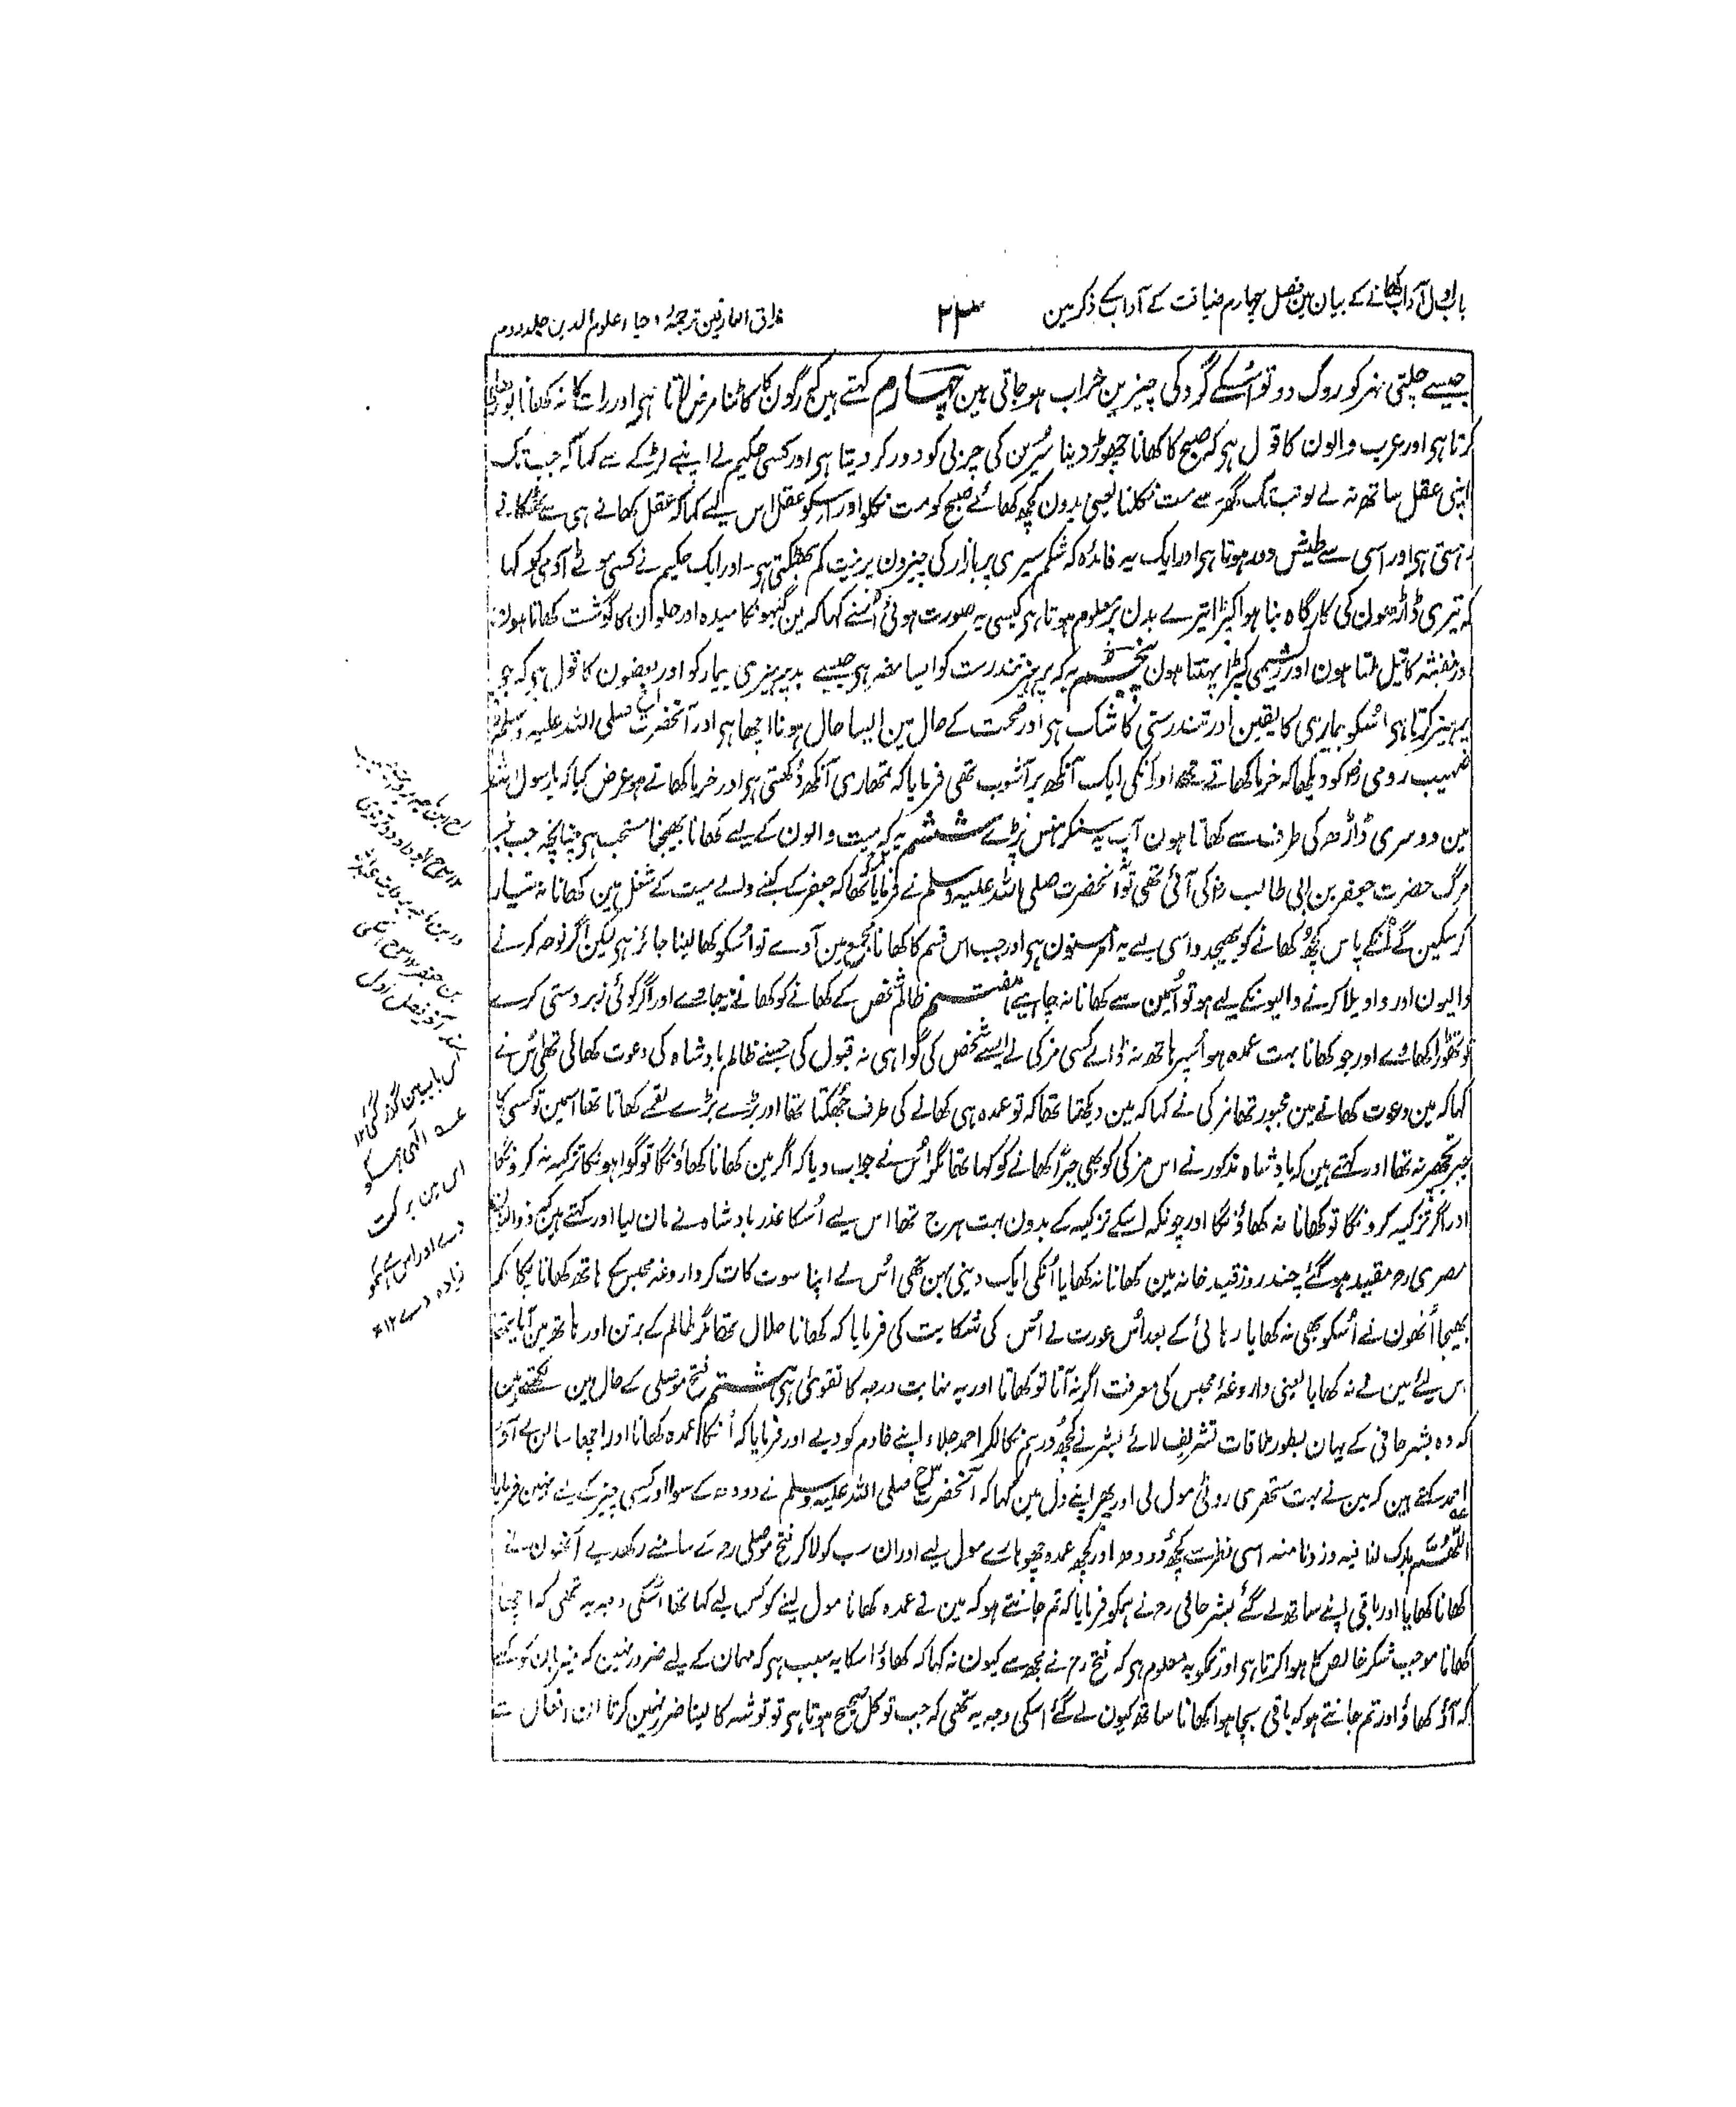 باب اول آداب کھانے کے بیان مین فصل چہارم ضیافت کے آداب کے ذکر مین
۲۳
مذاق العارفین ترجمۂ احیاء علوم الدین جلد دوم
جیسے چلتی نہر کو روک دو تو اُسکے گرد کی چیزین خراب ہو جاتی ہین چہارم کہتے ہین کہ رگون کا کاٹنا مرض لاتا ہی اور رات کا نہ کھانا بوڑھا
کرتا ہی اور عرب والون کا قول ہی کہ صبح کا کھانا چھوڑ دینا سُرین کی چربی کو دور کر دیتا ہی اور کسی حکیم نے اپنے لڑکے سے کہا کہ جب تک
اپنی عقل ساتھ نہ لے لو تب تک گھر سے مت نکلنا یعنی بدون کچھ کھائے صبح کو مت نکلو اور اسکو عقل اس لیے کہا کہ عقل کھانے ہی سے ٹھکانے
رہتی ہی اور اسی سے طیش دور ہوتا ہی اور ایک یہ فائدہ کہ شکم سیری پر بازار کی چیزون پر نیت کم بھٹکتی ہی۔ اور ایک حکیم نے کسی موٹے آدمی کو کہا
کہ تیری ڈاڑھون کی کارگاہ بنا ہوا کپڑا تیرے بدن پر معلوم ہوتا ہی کیسی یہ صورت ہوئی اُسنے کہا کہ مین گیہونکا میدہ اور حلوان کا گوشت کھاتا ہون
اور بنفشہ کا تیل ملتا ہون اور ریشمی کپڑا پہنتا ہون پنجم یہ کہ پرہیز تندرست کو ایسا مضر ہی جیسے بدپرہیزی بیمار کو اور بعضون کا قول ہی کہ جو
پرہیز کرتا ہی اُسکو بیماری کا یقین اور تندرستی کا شک ہی اور صحت کے حال مین ایسا حال ہونا اچھا ہی اور آنحضرت صلی اللہ علیہ وسلم نے
صہیب رومی رض کو دیکھا کہ خرما کھاتے تھے اور اُنکی ایک آنکھ پر آشوب تھی فرمایا کہ تمھاری آنکھ دُکھتی ہی اور خرما کھاتے ہو عرض کیا کہ یا رسول اللہ
مین دوسری ڈاڑھ کی طرف سے کھاتا ہون آپ یہ سنکر ہنس پڑے ششم یہ کہ میت والون کے لیے کھانا بھیجنا مستحب ہی چنانچہ جب خبر
مرگ حضرت جعفر بن ابی طالب رض کی آئی تھی تو آنحضرت صلی اللہ علیہ وسلم نے فرمایا تھا کہ جعفر کے کنبے والے میت کے شغل مین کھانا نہ تیار
کر سکین گے اُنکے پاس کچھ کھانے کو بھیجدو اسی لیے یہ امر مسنون ہی اور جب اس قسم کا کھانا مجمع مین آوے تو اُسکو کھا لینا جائز ہی لیکن اگر نوحہ کرنے
والیون اور واویلا کرنے والیونکے لیے ہو تو اُسمین سے کھانا نہ چاہیے ہفتم ظالم شخص کے کھانے کو کھانے نجاوے اور اگر کوئی زبردستی کرے
تو تھوڑا کھاوے اور جو کھانا بہت عمدہ ہو اُسپر ہاتھ نہ ڈالے کسی مزکی نے ایسے شخص کی گواہی نہ قبول کی جسنے ظالم بادشاہ کی دعوت کھائی تھی اُس نے
کہا کہ مین دعوت کھانے مین مجبور تھا مزکی نے کہا کہ مین دیکھتا تھا کہ تو عمدہ ہی کھانے کی طرف جھکتا تھا اور بڑے بڑے لقمے کھاتا تھا اسمین تو کسی کا
جبر تجھپر نہ تھا اور کہتے ہین کہ بادشاہ مذکور نے اس مزکی کو بھی جبراً کھانے کو کہا تھا مگر اُس نے جواب دیا کہ اگر مین کھانا کھاؤنگا تو گواہونکا تزکیہ نہ کرونگا
اور اگر تزکیہ کرونگا تو کھانا نہ کھاؤنگا اور چونکہ اُسکے تزکیہ کے بدون بہت ہرج تھا اس لیے اُسکا عذر بادشاہ نے مان لیا اور کہتے ہین کہ ذوالنون
مصری رح مقید ہو گئے چند روز قید خانہ مین کھانا نہ کھایا اُنکی ایک دینی بہن تھی اُس نے اپنا سوت کات کر داروغہ محبس کے ہاتھ کھانا پکا کر
بھیجا اُنھون نے اُسکو بھی نہ کھایا رہائی کے بعد اُس عورت نے اُس کی شکایت کی فرمایا کہ کھانا حلال تھا مگر ظالم کے برتن اور ہاتھ مین آیا تھا
اس لیے مین نے نہ کھایا یعنی داروغۂ محبس کی معرفت اگر نہ آتا تو کھاتا اور یہ نہایت درجہ کا تقویٰ ہی ہشتم فتح موصلی کے حال مین لکھتے ہین
کہ وہ بشر حافی کے یہان بطور ملاقات تشریف لائے بشر نے کچھ درہم نکالکر احمد جلاء اپنے خادم کو دیے اور فرمایا کہ اُنکا عمدہ کھانا اور اچھا سالن لے آؤ
احمد کہتے ہین کہ مین نے بہت ستھری روٹی مول لی اور پھر اپنے دل مین کہا کہ آنحضرت صلی اللہ علیہ وسلم نے دودھ کے سوا اور کسی چیز کے لیے نہین فرمایا
اللّٰھم بارک لنا فیہ وزدنا منہ اسی نظر سے کچھ دودھ اور کچھ عمدہ چھوہارے مول لیے اور ان سب کو لا کر فتح موصلی رح کے سامنے رکھدیے اُنھون نے
کھانا کھایا اور باقی اپنے ساتھ لے گئے بشر حافی رح نے ہمکو فرمایا کہ تم جانتے ہو کہ مین نے عمدہ کھانا مول لینے کو کس لیے کہا تھا اُسکی وجہ یہ تھی کہ اچھا
کھانا موجب شکر خالص کا ہوا کرتا ہی اور تمکو یہ معلوم ہی کہ فتح رح نے مجھ سے کیون نہ کہا کہ کھاؤ اسکا یہ سبب ہی کہ مہمان کے لیے ضرور نہین کہ میزبان کو کہے
کہ آؤ کھاؤ اور تم جانتے ہو کہ باقی بچا ہوا کھانا ساتھ کیون لے گئے اسکی وجہ یہ تھی کہ جب توکل صحیح ہوتا ہی تو توشہ کا لینا ضرر نہین کرتا
ابن ماجہ
ابو داؤد و ترمذی
و ابن ماجہ بروایت عبداللہ
بن جعفر
اس باب مین گذر گئی ۱۲
عـہ الٰہی ہمکو
اس مین برکت
دے اور اس سے ہمکو
زیادہ دے ۱۲